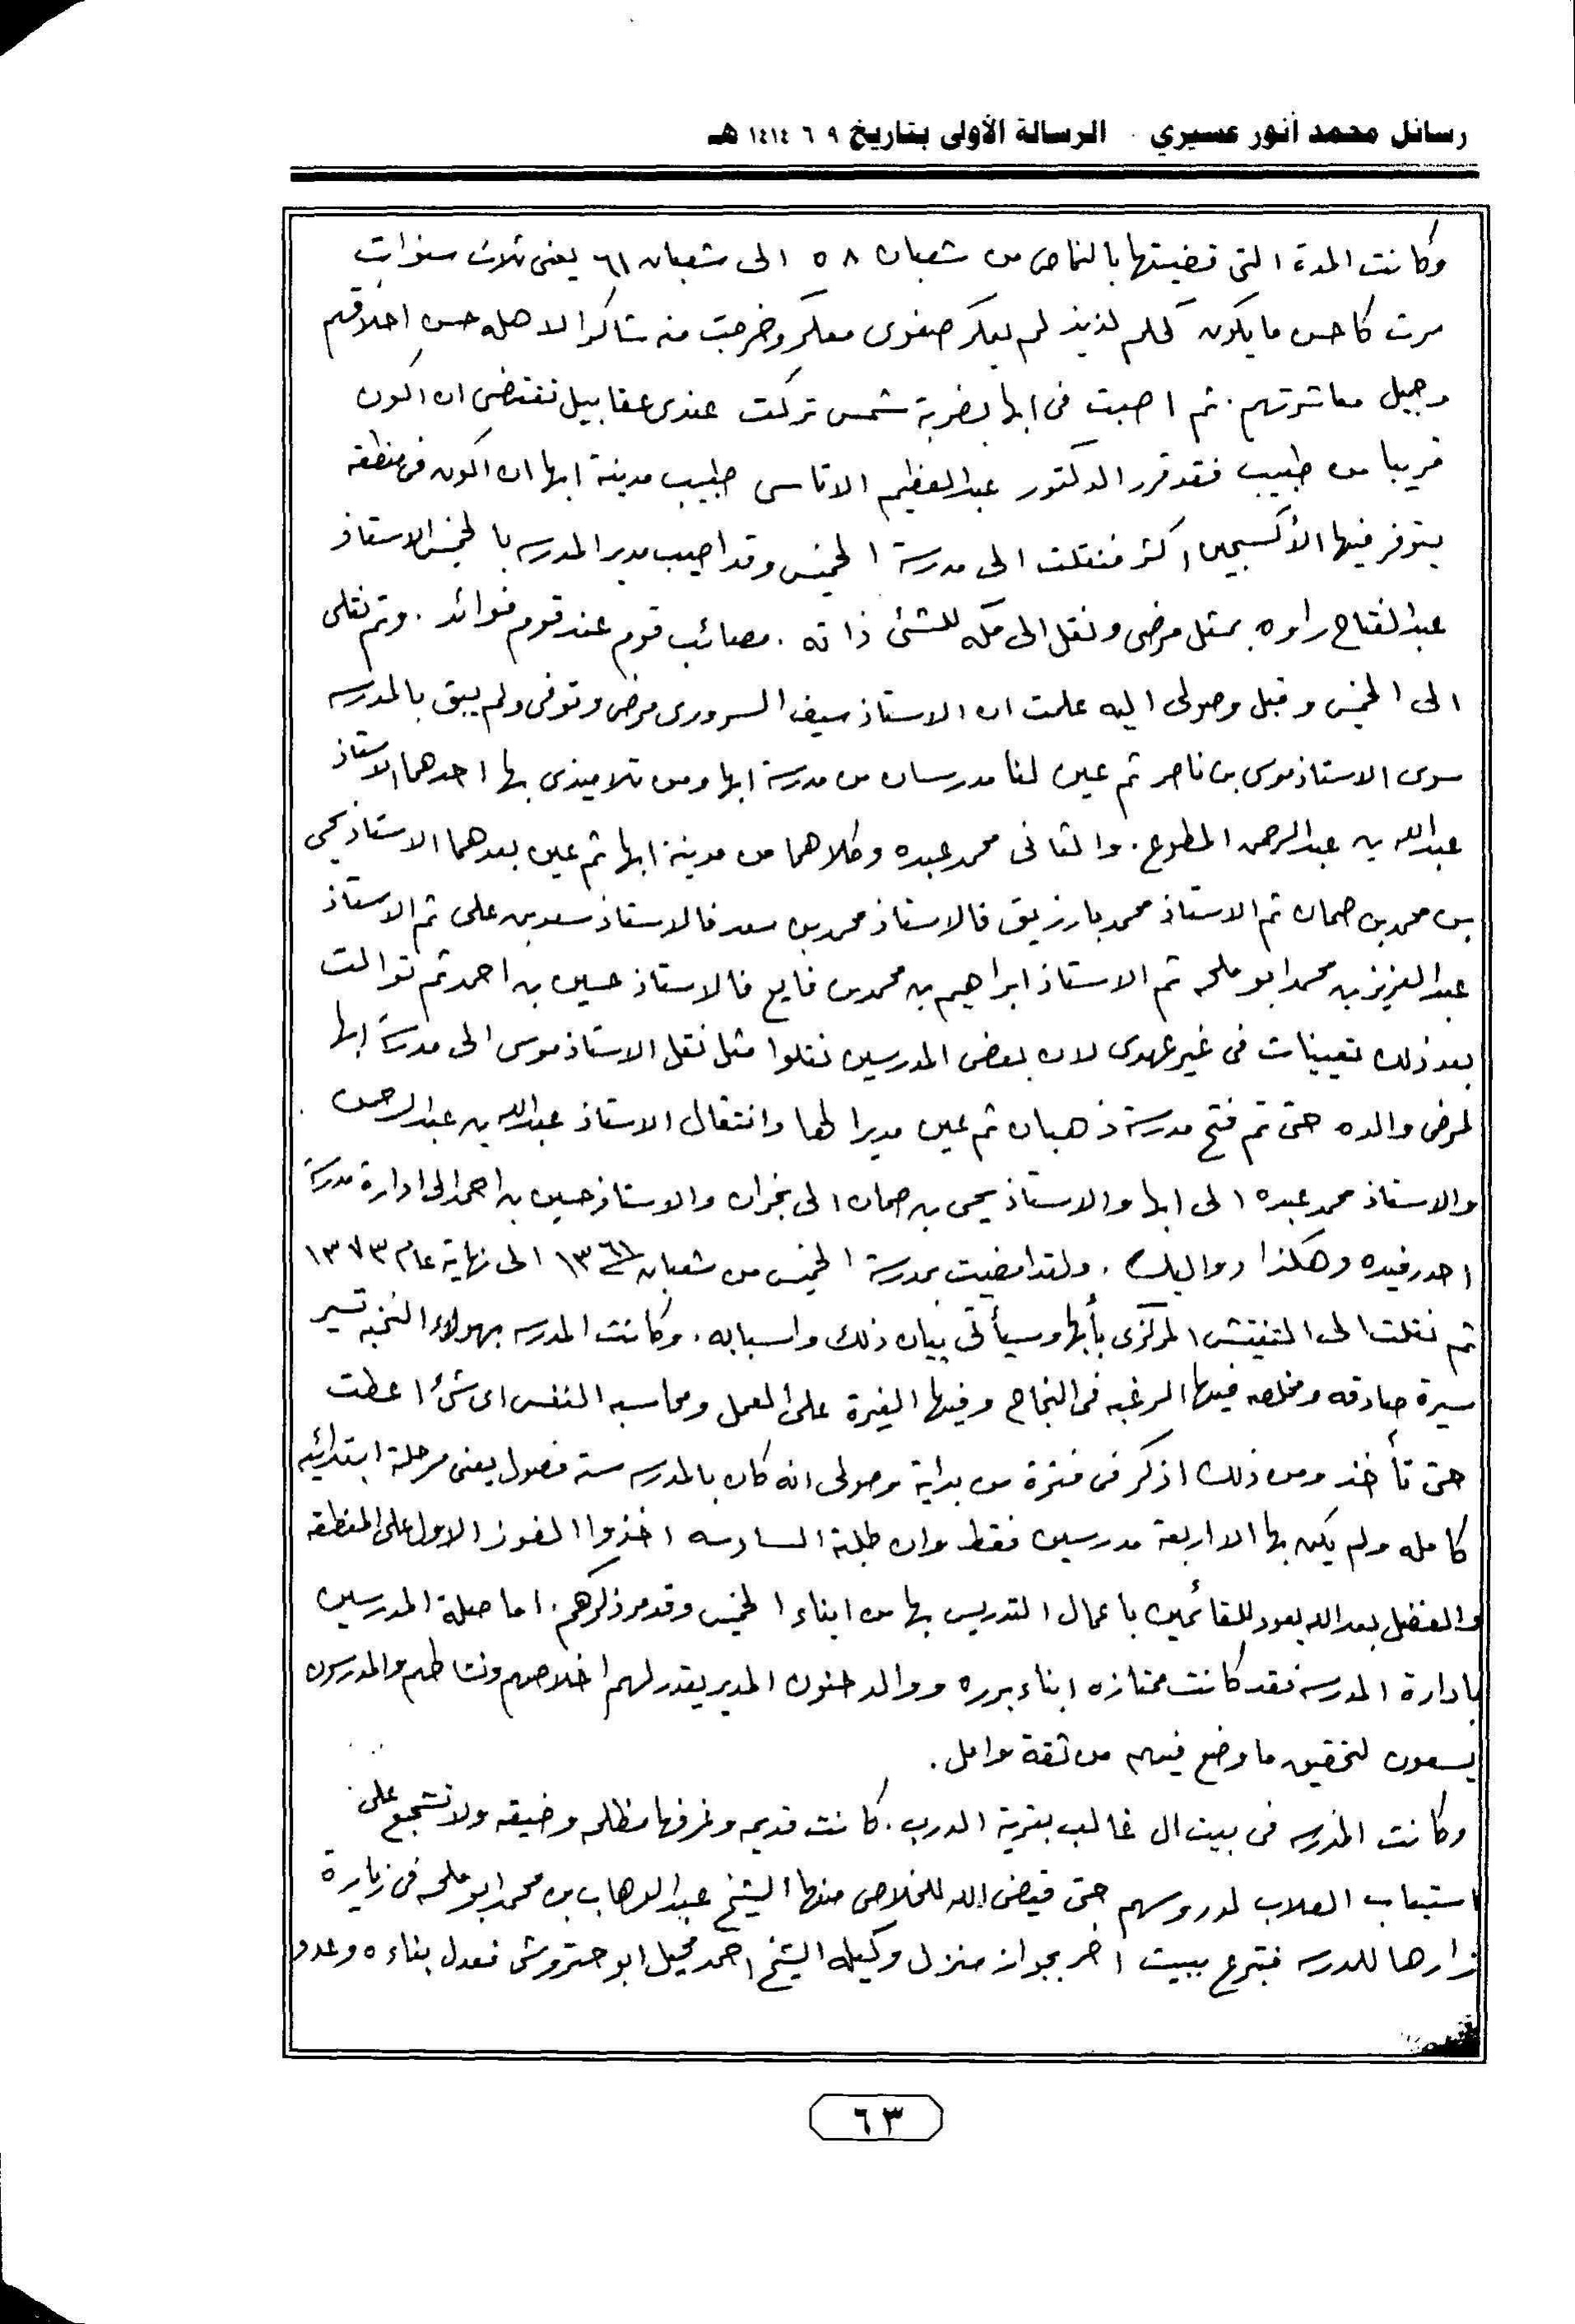 رسائل محمد أنور عسيري . الرسالة الأولى بتاريخ ٩ ٦ ١٤١٤ هـ
وكانت المدة التى قضيتها بالنماص من شعبان ٥٨ الى شعبان ٦١ يعنى ثلاث سنوات
مرت كاحسن ما يكون كحلم لذيذ لم يعكر صفوى معكر وخرجت منه شاكرا لاهله حسن اخلاقهم
وجميل معاشرتهم . ثم اصبت فى ابها بضربة شمس تركت عندى عقابيل تقتضى ان اكون
قريبا من طبيب فقد قرر الدكتور عبدالعظيم الاتاسى طبيب مدينة ابها ان اكون فى منطقه
يتوفر فيها الأكسيجين اكثر فنقلت الى مدرسة الخميس وقد اصيب مدير المدرسه بالخميس الاستاذ
عبدالفتاح راوه بمثل مرضى ونقل الى مكه للشئ ذاته . مصائب قوم عند قوم فوائد . وتم نقلى
الى الخميس وقبل وصولى اليه علمت ان الاستاذ سيف السرورى مرض وتوفى ولم يبق بالمدرسه
سوى الاستاذ موسى بن ناصر ثم عين لنا مدرسان من مدرسة ابها ومن تلاميذى بها احدهما الاستاذ
عبدالله بن عبدالرحمن المطوع . والثانى محمد عبده وكلاهما من مدينة ابها ثم عين بعدهما الاستاذ يحى
بن محمد بن صمان ثم الاستاذ محمد بارزيق فالاستاذ محمد بن سعد فالاستاذ سعد بن على ثم الاستاذ
عبدالعزيز بن محمد ابو ملحه ثم الاستاذ ابراهيم بن محمد بن فايع فالاستاذ حسين بن احمد ثم توالت
بعد ذلك تعيينات فى غير عهدى لان بعض المدرسين نقلوا مثل نقل الاستاذ موسى الى مدرسة ابها
لمرض والده حتى تم فتح مدرسة ذهبان ثم عين مديرا لها وانتقال الاستاذ عبدالله بن عبدالرحمن
والاستاذ محمد عبده الى ابها والاستاذ يحى بن صمان الى نجران والاستاذ حسين بن احمد الى ادارة مدرسة
احد رفيده وهكذا دواليك . ولقد امضيت بمدرسة الخميس من شعبان ١٣٦١ الى نهاية عام ١٣٧٣
ثم نقلت الى التفتيش المركزى بأبها وسيأتى بيان ذلك واسبابه . وكانت المدرسه بهولاء النخبه تسير
سيرة صادقه ومخلصه فيها الرغبه فى النجاح وفيها الغيرة على العمل ومحاسبه النفس اى شئ اعطت
حتى تأخذ ومن ذلك اذكر فى فترة من بداية وصولى انه كان بالمدرسه سته فصول يعنى مرحلة ابتدائيه
كامله ولم يكن بها الا اربعة مدرسين فقط وان طلبة السادسه اخذوا الفوز الاول على المنطقه
والفضل بعد الله يعود للقائمين باعمال التدريس بها من ابناء الخميس وقد مر ذكرهم . اما صلة المدرسين
بادارة المدرسه فقد كانت ممتازه ابناء برره ووالد حنون المدير يقدر لهم اخلاصهم ونشاطهم والمدرسون
يسعون لتحقيق ما وضع فيهم من ثقة وامل .
وكانت المدرسه فى بيت ال غالب بقرية الدرب . كانت قديمه وغرفها مظلمه وضيقه ولا تشجع على
استيعاب الطلاب لدروسهم حتى قيض الله للخلاص منها الشيخ عبدالوهاب بن محمد ابو ملحه فى زيارة
زارها للمدرسه فتبرع ببيت اخر بجوار منزل وكيله الشيخ احمد محيل ابو حتروش فعدل بناءه وعدد
٦٣